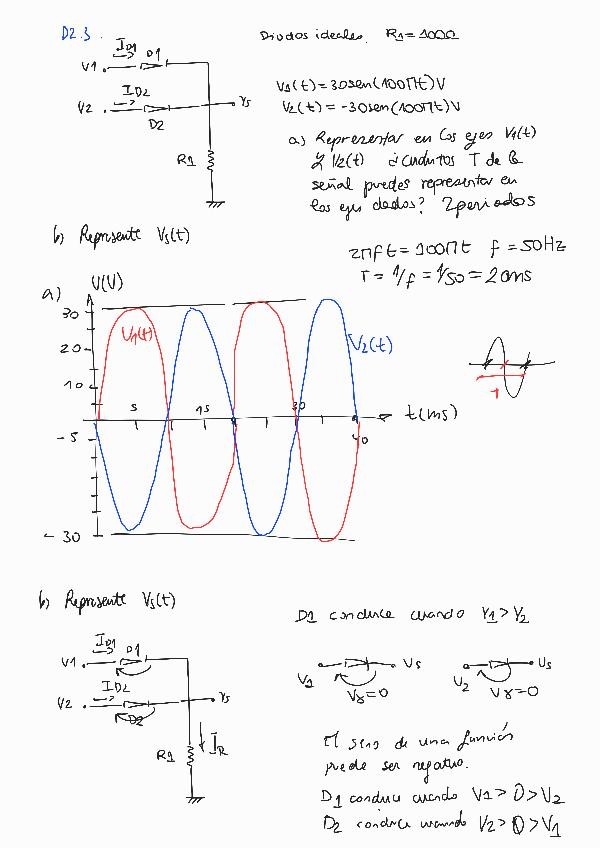 D2.3.
Diodos ideales. R1=1000Ω
ID1 D1
V1
ID2
V2
D2
Vs
R1
V1(t)=30sen(100πt)V
V2(t)=-30sen(100πt)V
a) Representar en los ejes V1(t)
y V2(t) ¿Cuántos T de la
señal puedes representar en
los ejes dados? 2periodos
b) Represente Vs(t)
2πft=100πt f=50Hz
T=1/f=1/50=20ms
a)
V(V)
30
20
10
-5
-30
V1(t)
V2(t)
5
15
30
40
t(ms)
T
b) Represente Vs(t)
D1 conduce cuando V1>V2
ID1 D1
V1
ID2
V2
D2
Vs
R1
IR
V1 Vs
Vγ=0
V2 Vs
Vγ=0
El seno de una función
puede ser negativo.
D1 conduce cuando V1>0>V2
D2 conduce cuando V2>0>V1